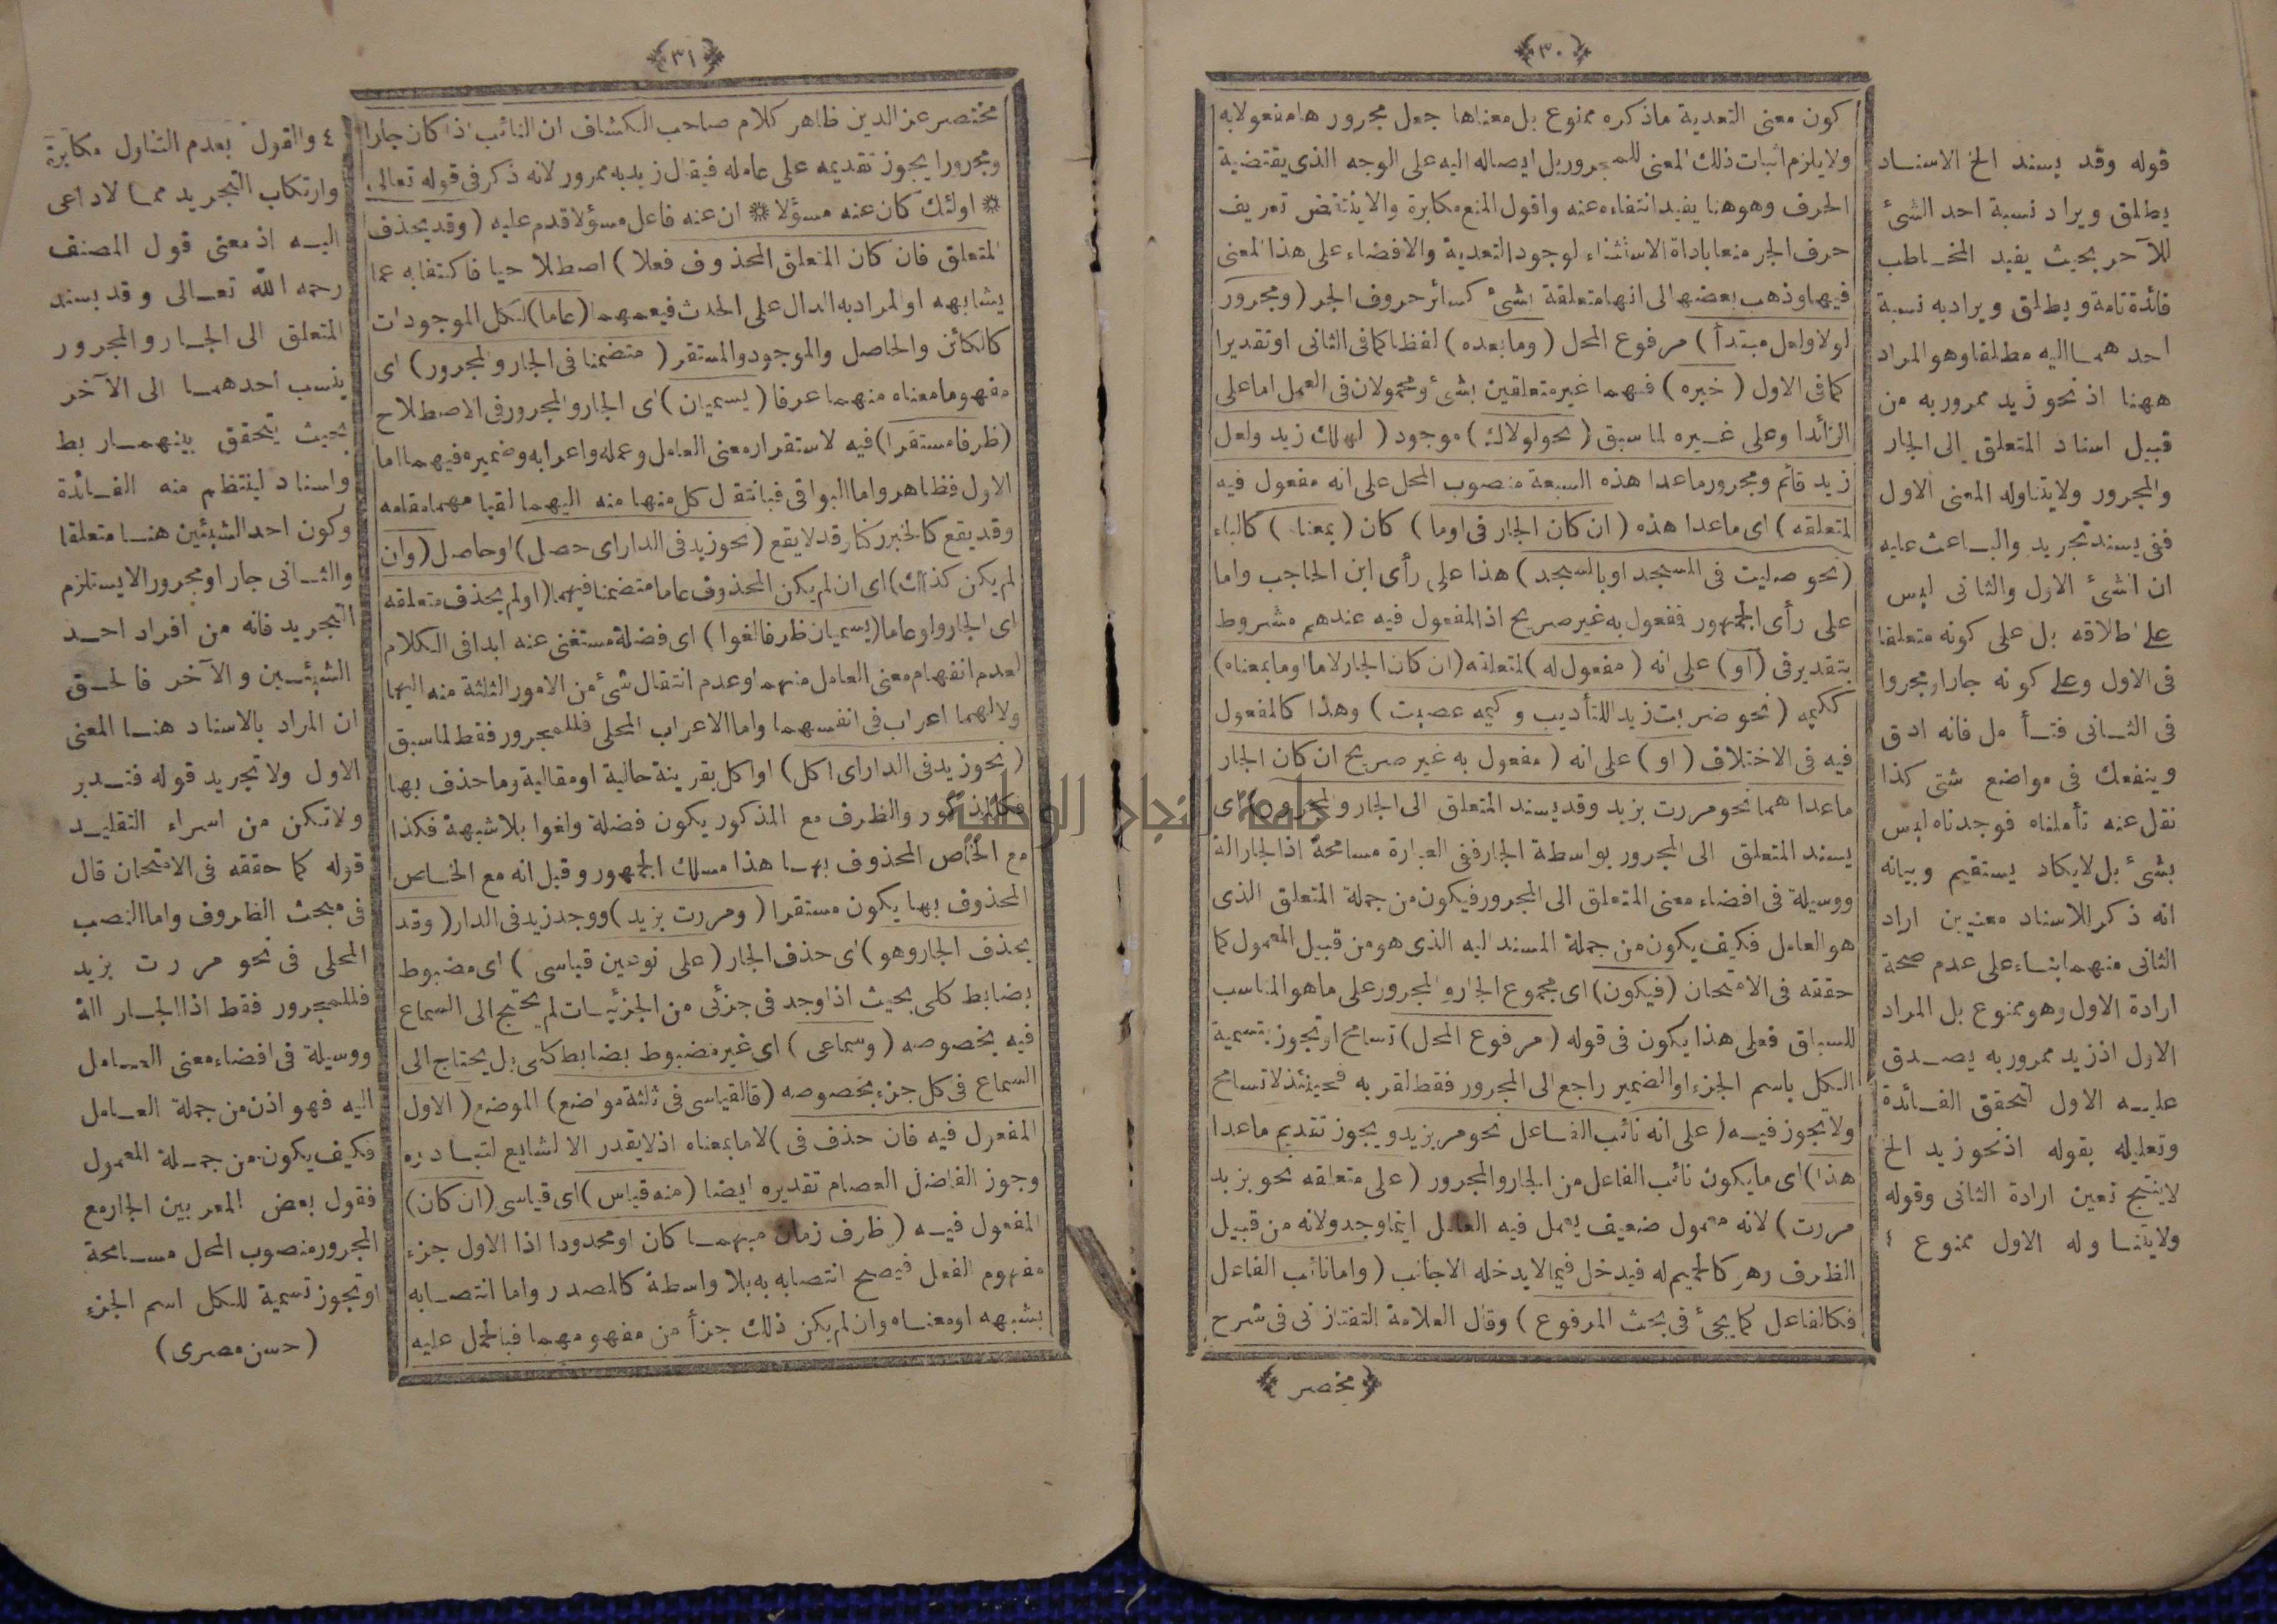 ﴿٣٠﴾
كون معنى التعدية ماذكره ممنوع بل معناها جعل مجرورها مفعولا به
ولايلزم اثبات ذلك المعنى للمجرور بل ايصاله اليه على الوجه الذى يقتضية
الحرف وهو هنا يفيد انتفاءه عنه واقول المنع مكابرة والا ينتقض تعريف
حرف الجر منعا باداة الاستثناء لوجود التعدية والافضاء على هذا المعنى
فيها وذهب بعضهم الى انها متعلقة بشئ كسائر حروف الجر (ومجرور
لولا ولعل مبتدأ) مرفوع المحل (ومابعده) لفظا كما فى الثانى او تقديرا
كما فى الاول (خبره) فهما غير متعلقين بشئ ومحمولان فى العمل اما على
الزائدا وعلى غيره لما سبق (نحو لولاك) موجود (لهلك زيد ولعل
زيد قائم ومجرور ماعدا هذه السبعة منصوب المحل على انه مفعول فيه
لمتعلقه) اى ماعدا هذه (ان كان الجار فى اوما) كان (بمعناه) كالباء
(نحو صليت فى المسجد او بالمسجد) هذا على رأى ابن الحاجب واما
على رأى الجمهور فمفعول به غير صريح اذ المفعول فيه عندهم مشروط
بتقدير فى (او) على انه (مفعول له) لمتعلقه (ان كان الجار لاما او مابمعناه)
ككيمه (نحو ضربت زيدا للتأديب وكيمه عصيت) وهذا كالمفعول
فيه فى الاختلاف (او) على انه (مفعول به غير صريح ان كان الجار
ماعدا هما نحو مررت بزيد وقد يسند المتعلق الى الجار والمجرور) اى
يسند المتعلق الى المجرور بواسطة الجار ففى العبارة مسامحة اذ الجار الة
ووسيلة فى افضاء معنى المتعلق الى المجرور فيكون من جملة المتعلق الذى
هو العامل فكيف يكون من جملة المسند اليه الذى هو من قبيل المعمول كما
حققه فى الامتحان (فيكون) اى مجموع الجار والمجرور على ما هو المناسب
للسباق فعلى هذا يكون فى قوله (مرفوع المحل) تسامح او تجوز بتسمية
الكل باسم الجزء او الضمير راجع الى المجرور فقط لقربه فحينئذ لاتسامح
ولاتجوز فيه (على انه نائب الفاعل نحو مر بزيد ويجوز تقديم ماعدا
هذا) اى مايكون نائب الفاعل من الجار والمجرور (على متعلقه نحو بزيد
مررت) لانه معمول ضعيف يعمل فيه العامل اينما وجد ولانه من قبيل
الظرف وهو كالحميم له فيدخل فيما لايدخله الاجانب (واما نائب الفاعل
فكالفاعل كما يجئ فى بحث المرفوع) وقال العلامة التفتازنى فى شرح
﴿مختصر﴾
قوله وقد يسند الخ الاسناد
يطلق ويراد نسبة احد الشئ
للآخر بحيث يفيد المخاطب
فائدة تامة ويطلق ويراد به نسبة
احد هما اليه مطلقا وهو المراد
ههنا اذ نحو زيد ممرور به من
قبيل اسناد المتعلق الى الجار
والمجرور ولايتناوله المعنى الاول
ففى يسند تجريد والباعث عليه
ان الشئ الاول والثانى ليس
على اطلاقه بل على كونه متعلقا
فى الاول وعلى كونه جارا ومجروا
فى الثانى فتأ مل فانه ادق
وينفعك فى مواضع شتى كذا
نقل عنه تأملناه فوجدناه ليس
بشئ بل لايكاد يستقيم وبيانه
انه ذكر للاسناد معنيين اراد
الثانى منهما بناء على عدم صحة
ارادة الاول وهو ممنوع بل المراد
الاول اذ زيد ممرور به يصدق
عليه الاول لتحقق الفائدة
وتعليله بقوله اذ نحو زيد الخ
لاينتج تعين ارادة الثانى وقوله
ولايتنا وله الاول ممنوع ٤
﴿٣١﴾
مختصر عز الدين ظاهر كلام صاحب الكشاف ان النائب اذا كان جارا
ومجرورا يجوز تقديمه على عامله فيقال زيد به ممرور لانه ذكر فى قوله تعالى
* اولئك كان عنه مسؤلا * ان عنه فاعل مسؤلا قدم عليه (وقد يحذف
المتعلق فان كان المتعلق المحذوف فعلا) اصطلا حيا فاكتفا به عما
يشابهه او المراد به الدال على الحدث فيعمهما (عاما) لكل الموجودات
كالكائن والحاصل والموجود والمستقر (متضمنا فى الجار والمجرور) اى
مفهوما معناه منهما عرفا (يسميان) اى الجار والمجرور فى الاصطلاح
(ظرفا مستقرا) فيه لاستقرار معنى العامل وعمله واعرابه وضميره فيهما اما
الاول فظاهر واما البواقى فبانتقال كل منها منه اليهما لقيا مهما مقامه
وقد يقع كالخبر ركنا وقد لايقع (نحو زيد فى الدار اى حصل) او حاصل (وان
لم يكن كذلك) اى ان لم يكن المحذوف عاما متضمنا فيهما (او لم يحذف متعلقه
اى الجار ولو عاما (يسميان ظرفا لغوا) اى فضلة مستغنى عنه ابدا فى الكلام
لعدم انفهام معنى العامل منهما وعدم انتقال شئ من الامور الثلثة منه اليهما
ولالهما اعراب فى انفسهما واما الاعراب المحلى فللمجرور فقط لما سبق
(نحو زيد فى الدار اى اكل) او اكل بقرينة حالية او مقالية وما حذف بها
فكالمذكور والظرف مع المذكور يكون فضلة ولغوا بلا شبهة فكذا
مع الخاص المحذوف بها هذا مسلك الجمهور وقيل انه مع الخاص
المحذوف بها يكون مستقرا (ومررت بزيد) ووجد زيد فى الدار (وقد
يحذف الجار وهو) اى حذف الجار (على نوعين قياسى) اى مضبوط
بضابط كلى بحيث اذا وجد فى جزئى من الجزئيات لم يحتج الى السماع
فيه بخصوصه (وسماعى) اى غير مضبوط بضابط كلى بل يحتاج الى
السماع فى كل جزء بخصوصه (فالقياسى فى ثلثة مواضع) الموضع (الاول
المفعول فيه فان حذف فى) لا مابمعناه اذ لايقدر الا لشايع لتبا دره
وجوز الفاضل العصام تقديره ايضا (منه قياس) اى قياسى (ان كان)
المفعول فيه (ظرف زمان مبهما كان او محدودا اذا الاول جزء
مفهوم الفعل فيصح انتصابه به بلا واسطة كالمصدر واما انتصابه
بشبهه او معناه وان لم يكن ذلك جزأ من مفهو مهما فبالحمل عليه
٤ والقول بعدم التناول مكابرة
وارتكاب التجريد مما لاداعى
اليه اذ معنى قول المصنف
رحمه الله تعالى وقد يسند
المتعلق الى الجار والمجرور
ينسب احدهما الى الآخر
بحيث يتحقق بينهما ربط
واسناد لينتظم منه الفائدة
وكون احد الشيئين هنا متعلقا
والثانى جارا ومجرورا لايستلزم
التجريد فانه من افراد احد
الشيئين والآخر فالحق
ان المراد بالاسناد هنا المعنى
الاول ولا تجريد قوله فتدبر
ولاتكن من اسراء التقليد
قوله كما حققه فى الامتحان قال
فى مبحث الظروف واما النصب
المحلى فى نحو مررت بزيد
فللمجرور فقط اذا الجار الة
ووسيلة فى افضاء معنى العامل
اليه فهو اذن من جملة العامل
فكيف يكون من جملة المعمول
فقول بعض المعربين الجار مع
المجرور منصوب المحل مسامحة
او تجوز تسمية للكل اسم الجزء
(حسن مصرى)
جامعة النجاح الوطنية